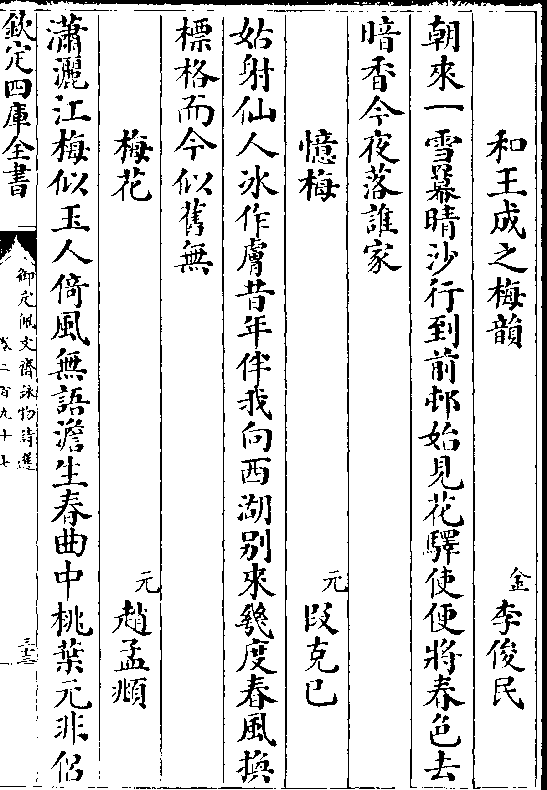 和王成之梅韻　金　李俊民
朝來一雪羃晴沙行到前邨始見花驛使便將春色去
暗香今夜落誰家
憶梅　元　段克已
姑射仙人冰作膚昔年伴我向西湖别來幾度春風換
標格而今似舊無
梅花　元　趙孟頫
瀟灑江梅似玉人倚風無語澹生春曲中桃葉元非侣
欽定四庫全書
御定佩文齋詠物詩選
卷二百九十七
三十三